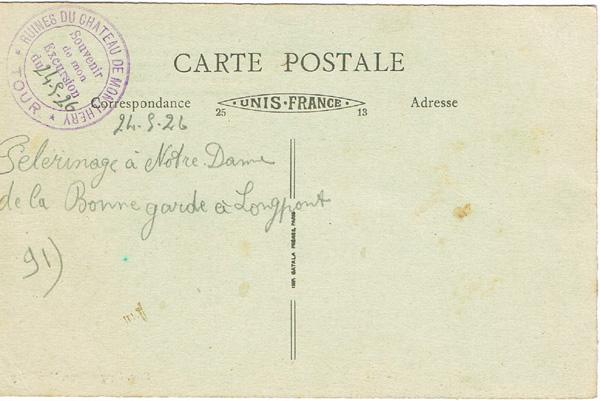 RUINES DU CHATEAU DE MONTLHERY
★ TOUR ★
Souvenir
de mon
Excursion
du
24-5-26
CARTE POSTALE
Correspondance
25 UNIS-FRANCE 13
Adresse
24-5-26
Pélerinage à Notre-Dame
de la Bonne garde à Longpont
91)
IMP. CATALA FRERES, PARIS